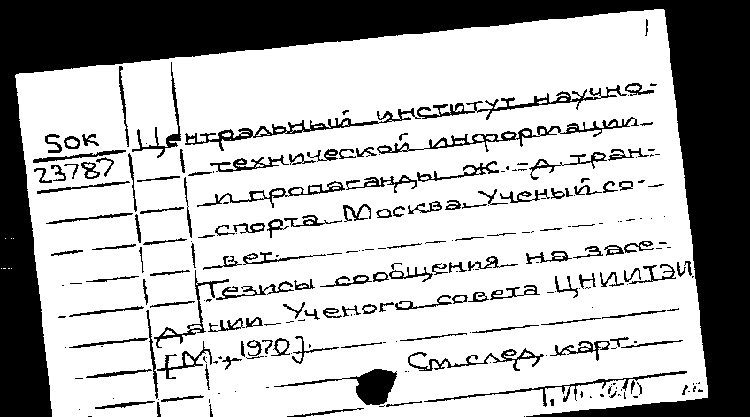 1
50К Центральный институт научно-
23787 технической информации
и пропаганды ж.-д. тран-
спорта. Москва. Ученый со-
вет.
Тезисы сообщения на засе-
дании Ученого совета ЦНИИТЭИ
[М., 1970].
См. след. карт.